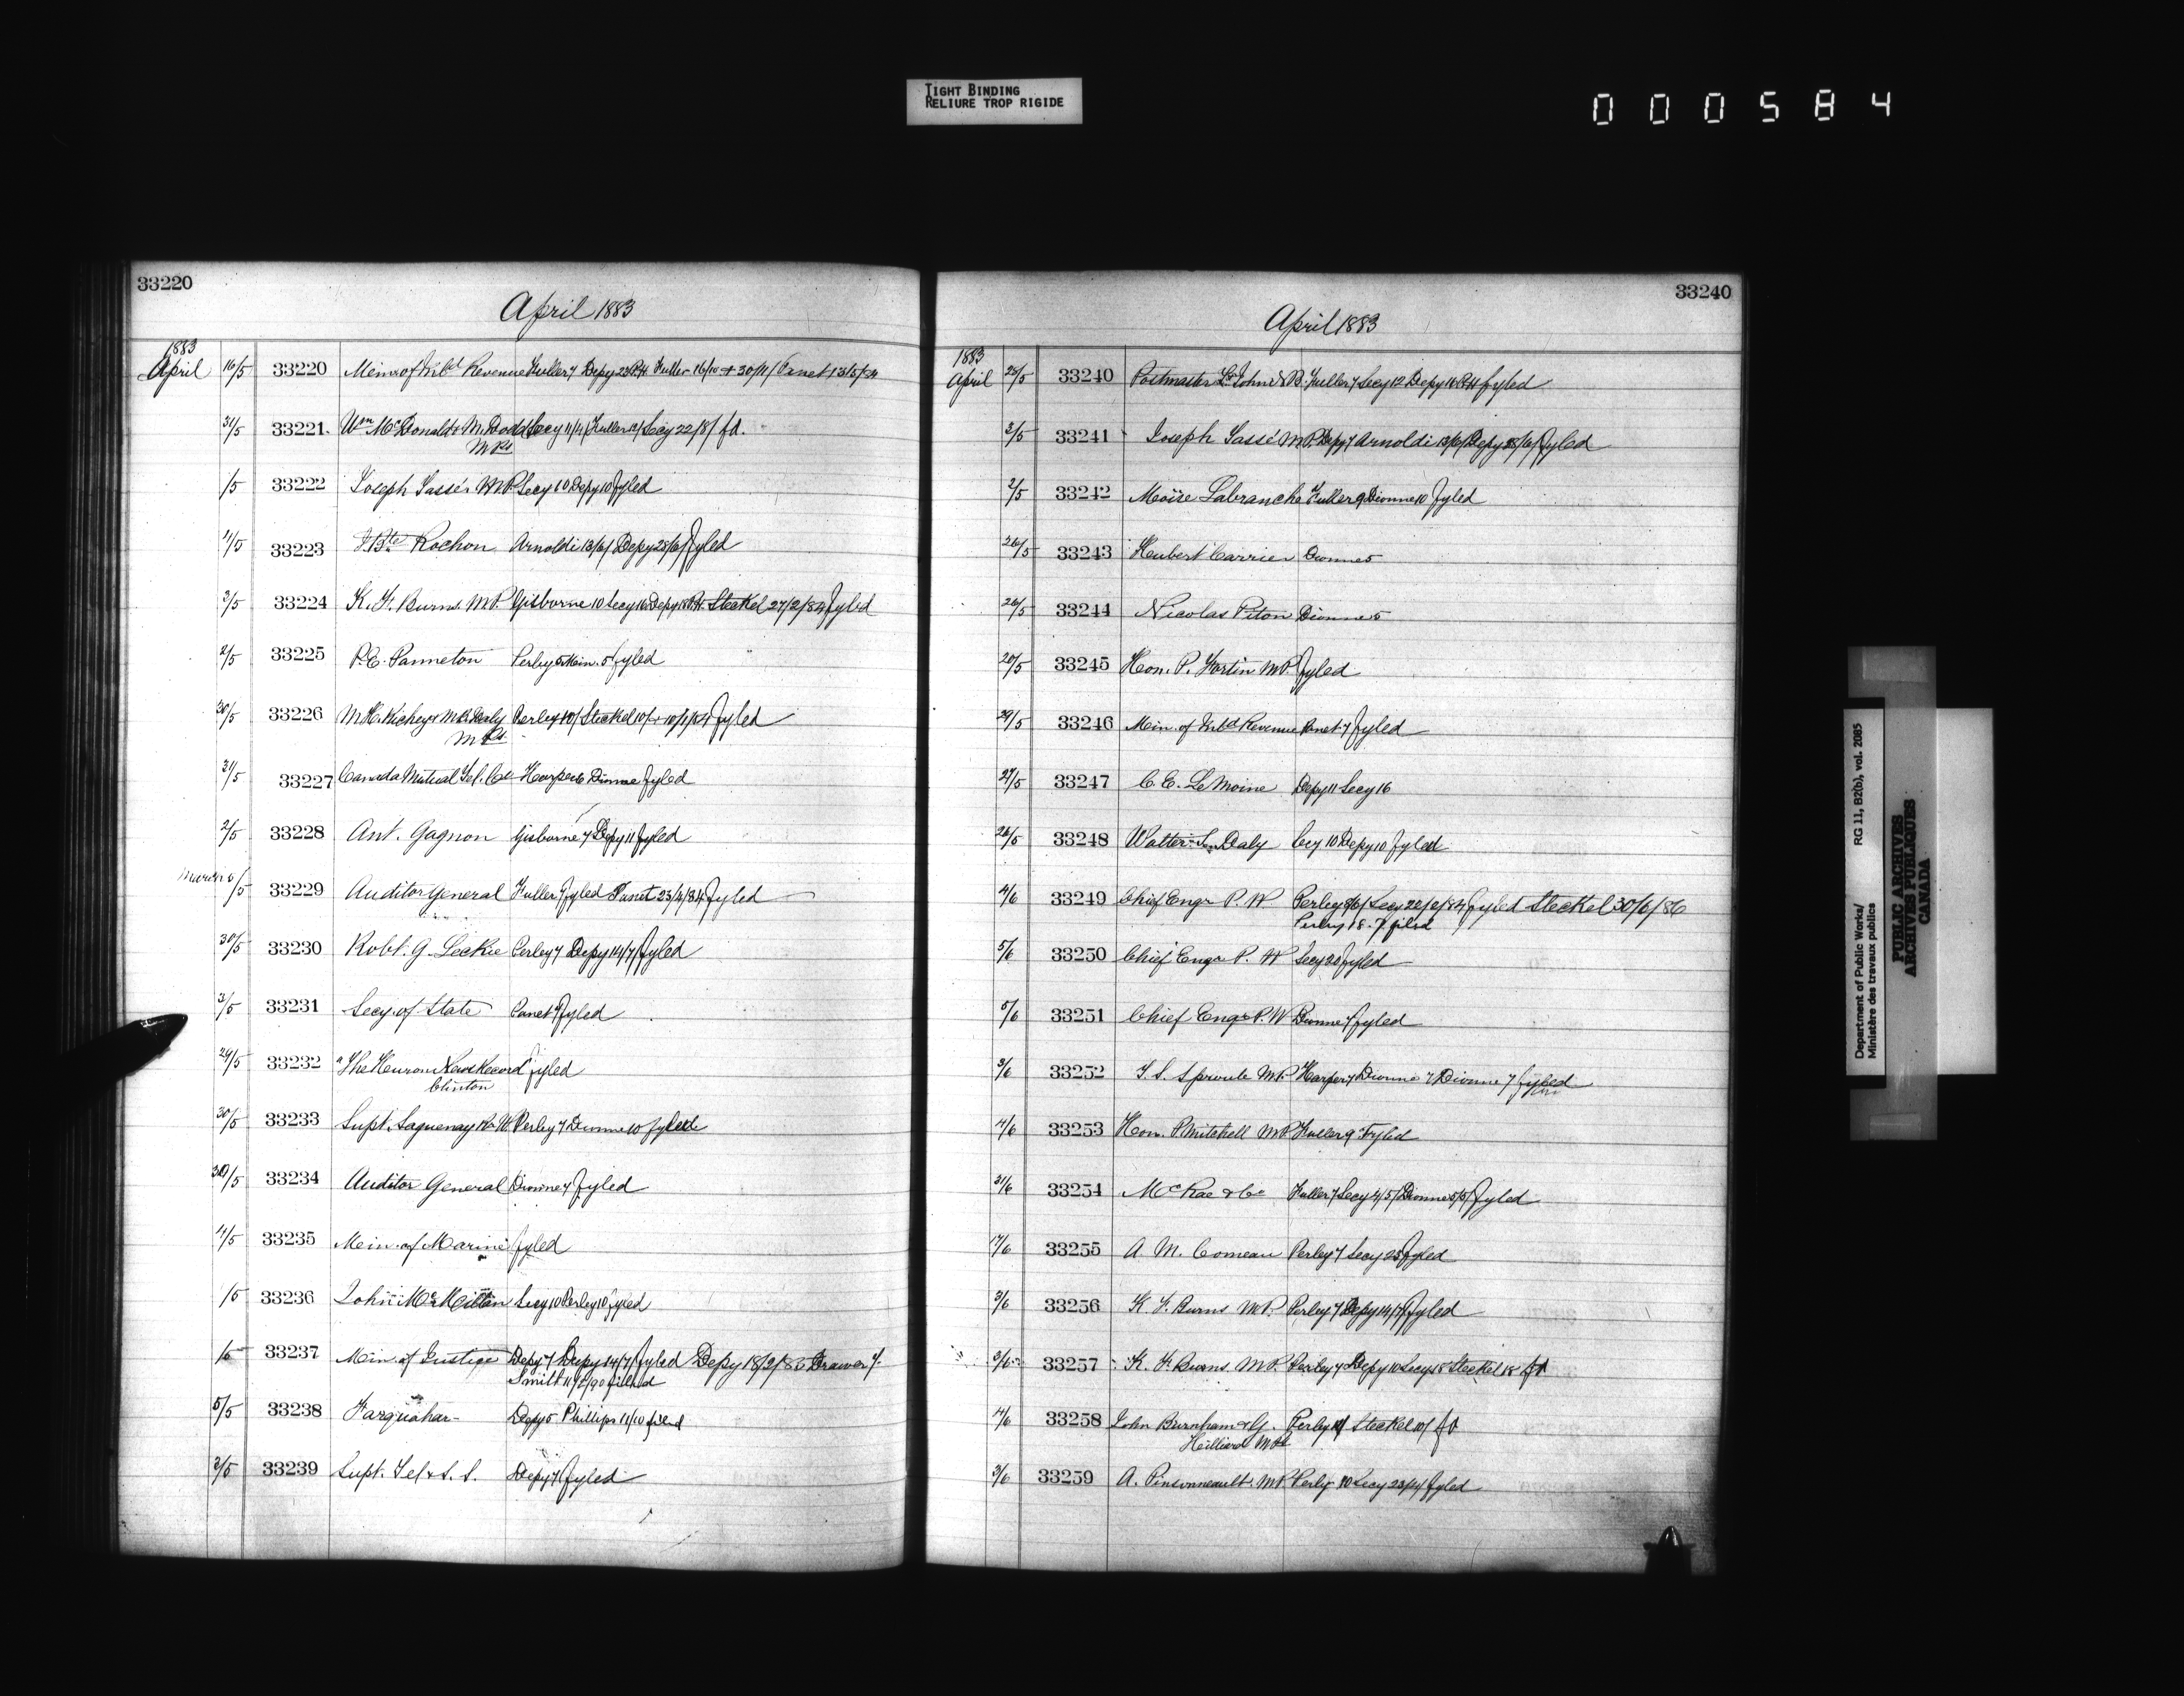 TIGHT BINDING
RELIURE TROP RIGIDE
000584
33220
April 1883
1883
April 16/5 33220 Min. of Inl'd Revenue Fuller 7 Depy 23 P.H. Fuller 16/10 + 30/11/ Panet 13/5/84
31/5 33221 Wm McDonald & M. Dodd Secy 11/4/ Fuller 12/ Secy 22/8/ fd.
M.Ps
/5 33222 Joseph Tassé M.P. Secy 10 Depy 10 fyled
4/5 33223 J. Bte Rochon Arnoldi 13/6/ Depy 25/6/ fyled
3/5 33224 K. F. Burns M.P. Gisborne 10 Secy 16 Depy 18 P.H. Steckel 27/2/84 fyled
2/5 33225 P. E. Panneton Perley 5 Min. 5 fyled
30/5 33226 M. H. Richey & M. B. Daly Perley 10/ Steckel 10/ + 10/1/84 fyled
M.Ps.
31/5 33227 Canada Mutual Tel. Co Harper 6 Dionne fyled
2/5 33228 Ant. Gagnon Gisborne 7 Depy 11 fyled
/5 33229 Auditor General Fuller 7 fyled Panet 23/4/84 fyled
30/5 33230 Robt. G. Leckie Perley 7 Depy 14/7/ fyled
3/5 33231 Secy. of State Panet 7 fyled
29/5 33232 "The Huron News Record" fyled
Clinton
30/5 33233 Supt. Saguenay Perley 7 Dionne 10 fyled
30/5 33234 Auditor General Dionne 7 fyled
4/5 33235 Min. of Marine fyled
/5 33236 John McMillan Secy 10 Perley 10 fyled
/5 33237 Min. of Justice Depy 7 Depy 14/7/ fyled Depy 18/2/86 Drawer
Smith 11/2/90 filed
5/5 33238 Farquahar Depy 5 Phillips 11/10 filed
2/5 33239 Supt. Tel & S. S. Depy 7 fyled
33240
April 1883
1883
April 25/5 33240 Postmaster St. John N.B. Fuller 7 Secy 12 Depy 16 P.H. fyled
3/5 33241 Joseph Tassé M.P. Depy 7 Arnoldi 13/6/ Depy 25/6/ fyled
2/5 33242 Moïse Labranche Fuller 9 Dionne 10 fyled
26/5 33243 Hubert Carrier Dionne 5
26/5 33244 Nicolas Piton Dionne 5
20/5 33245 Hon. P. Fortin M.P. fyled
29/5 33246 Min. of Inl'd Revenue Panet 7 fyled
27/5 33247 C. E. LeMoine Depy 11 Secy 16
26/5 33248 Walter Daly Secy 10 Depy 10 fyled
4/6 33249 Chief Engr P. W Perley 8/6/ Secy 20/2/84 fyled Steckel 30/6/86
Perley 18.7 filed
5/6 33250 Chief Engr P. W Secy 20 fyled
5/6 33251 Chief Engr P. W Dionne 7 fyled
3/6 33252 T. S. Sproule M.P. Harper 7 Dionne 7 Dionne 7 fyled
4/6 33253 Hon. P. Mitchell M.P. Fuller 9 Fyled
31/6 33254 McRae & Co Fuller 7 Secy 4/5/ Dionne 5/5/ fyled
17/6 33255 A. M. Comeau Perley 7 Secy 25 fyled
3/6 33256 K. F. Burns M.P. Perley 7 Depy 14/7/ fyled
3/6 33257 K. F. Burns M.P. Perley 7 Depy 10 Secy 18 Steckel 18 fd
4/6 33258 John Burnham & G. Perley 10/ Steckel 10/ fd
Hilliard M.Ps
3/6 33259 A. Pinsonneault M.P. Perley 10 Secy 23/4/ fyled
Department of Public Works/ RG 11, B2(b), vol. 2085
Ministère des travaux publics
PUBLIC ARCHIVES
ARCHIVES PUBLIQUES
CANADA